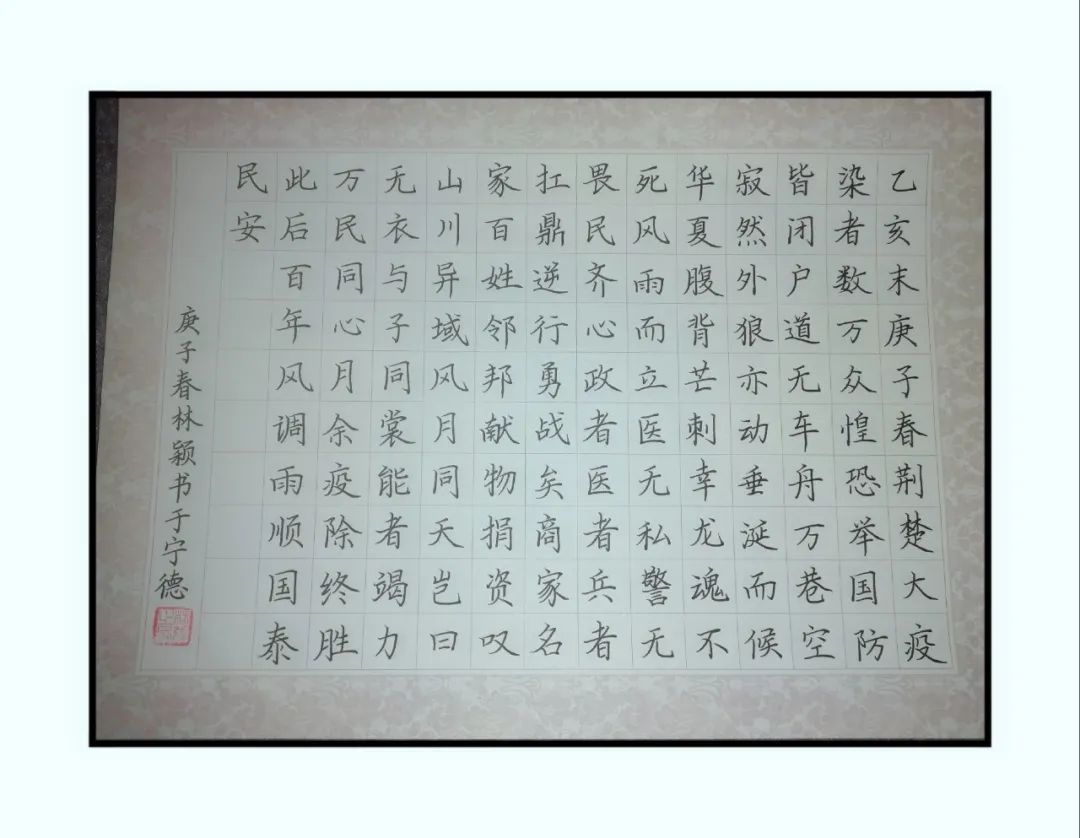 乙亥末庚子春荆楚大疫
染者数万众惶恐举国防
皆闭户道无车舟万巷空
寂然外狼亦动垂涎而候
华夏腹背芒刺幸龙魂不
死风雨而立医无私警无
畏民齐心政者医者兵者
扛鼎逆行勇战矣商家名
家百姓邻邦献物捐资叹
山川异域风月同天岂曰
无衣与子同裳能者竭力
万民同心月余疫除终胜
此后百年风调雨顺国泰
民安
庚子春林颖书于宁德